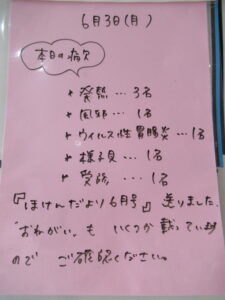 6月3日(月)
本日の病欠
* 発熱…3名
* 風邪…1名
* ウイルス性胃腸炎…1名
* 様子見…1名
* 受診…1名
『ほけんだより6月号』送りました。
"おねがい"も いくつか載っています
ので ご確認ください。